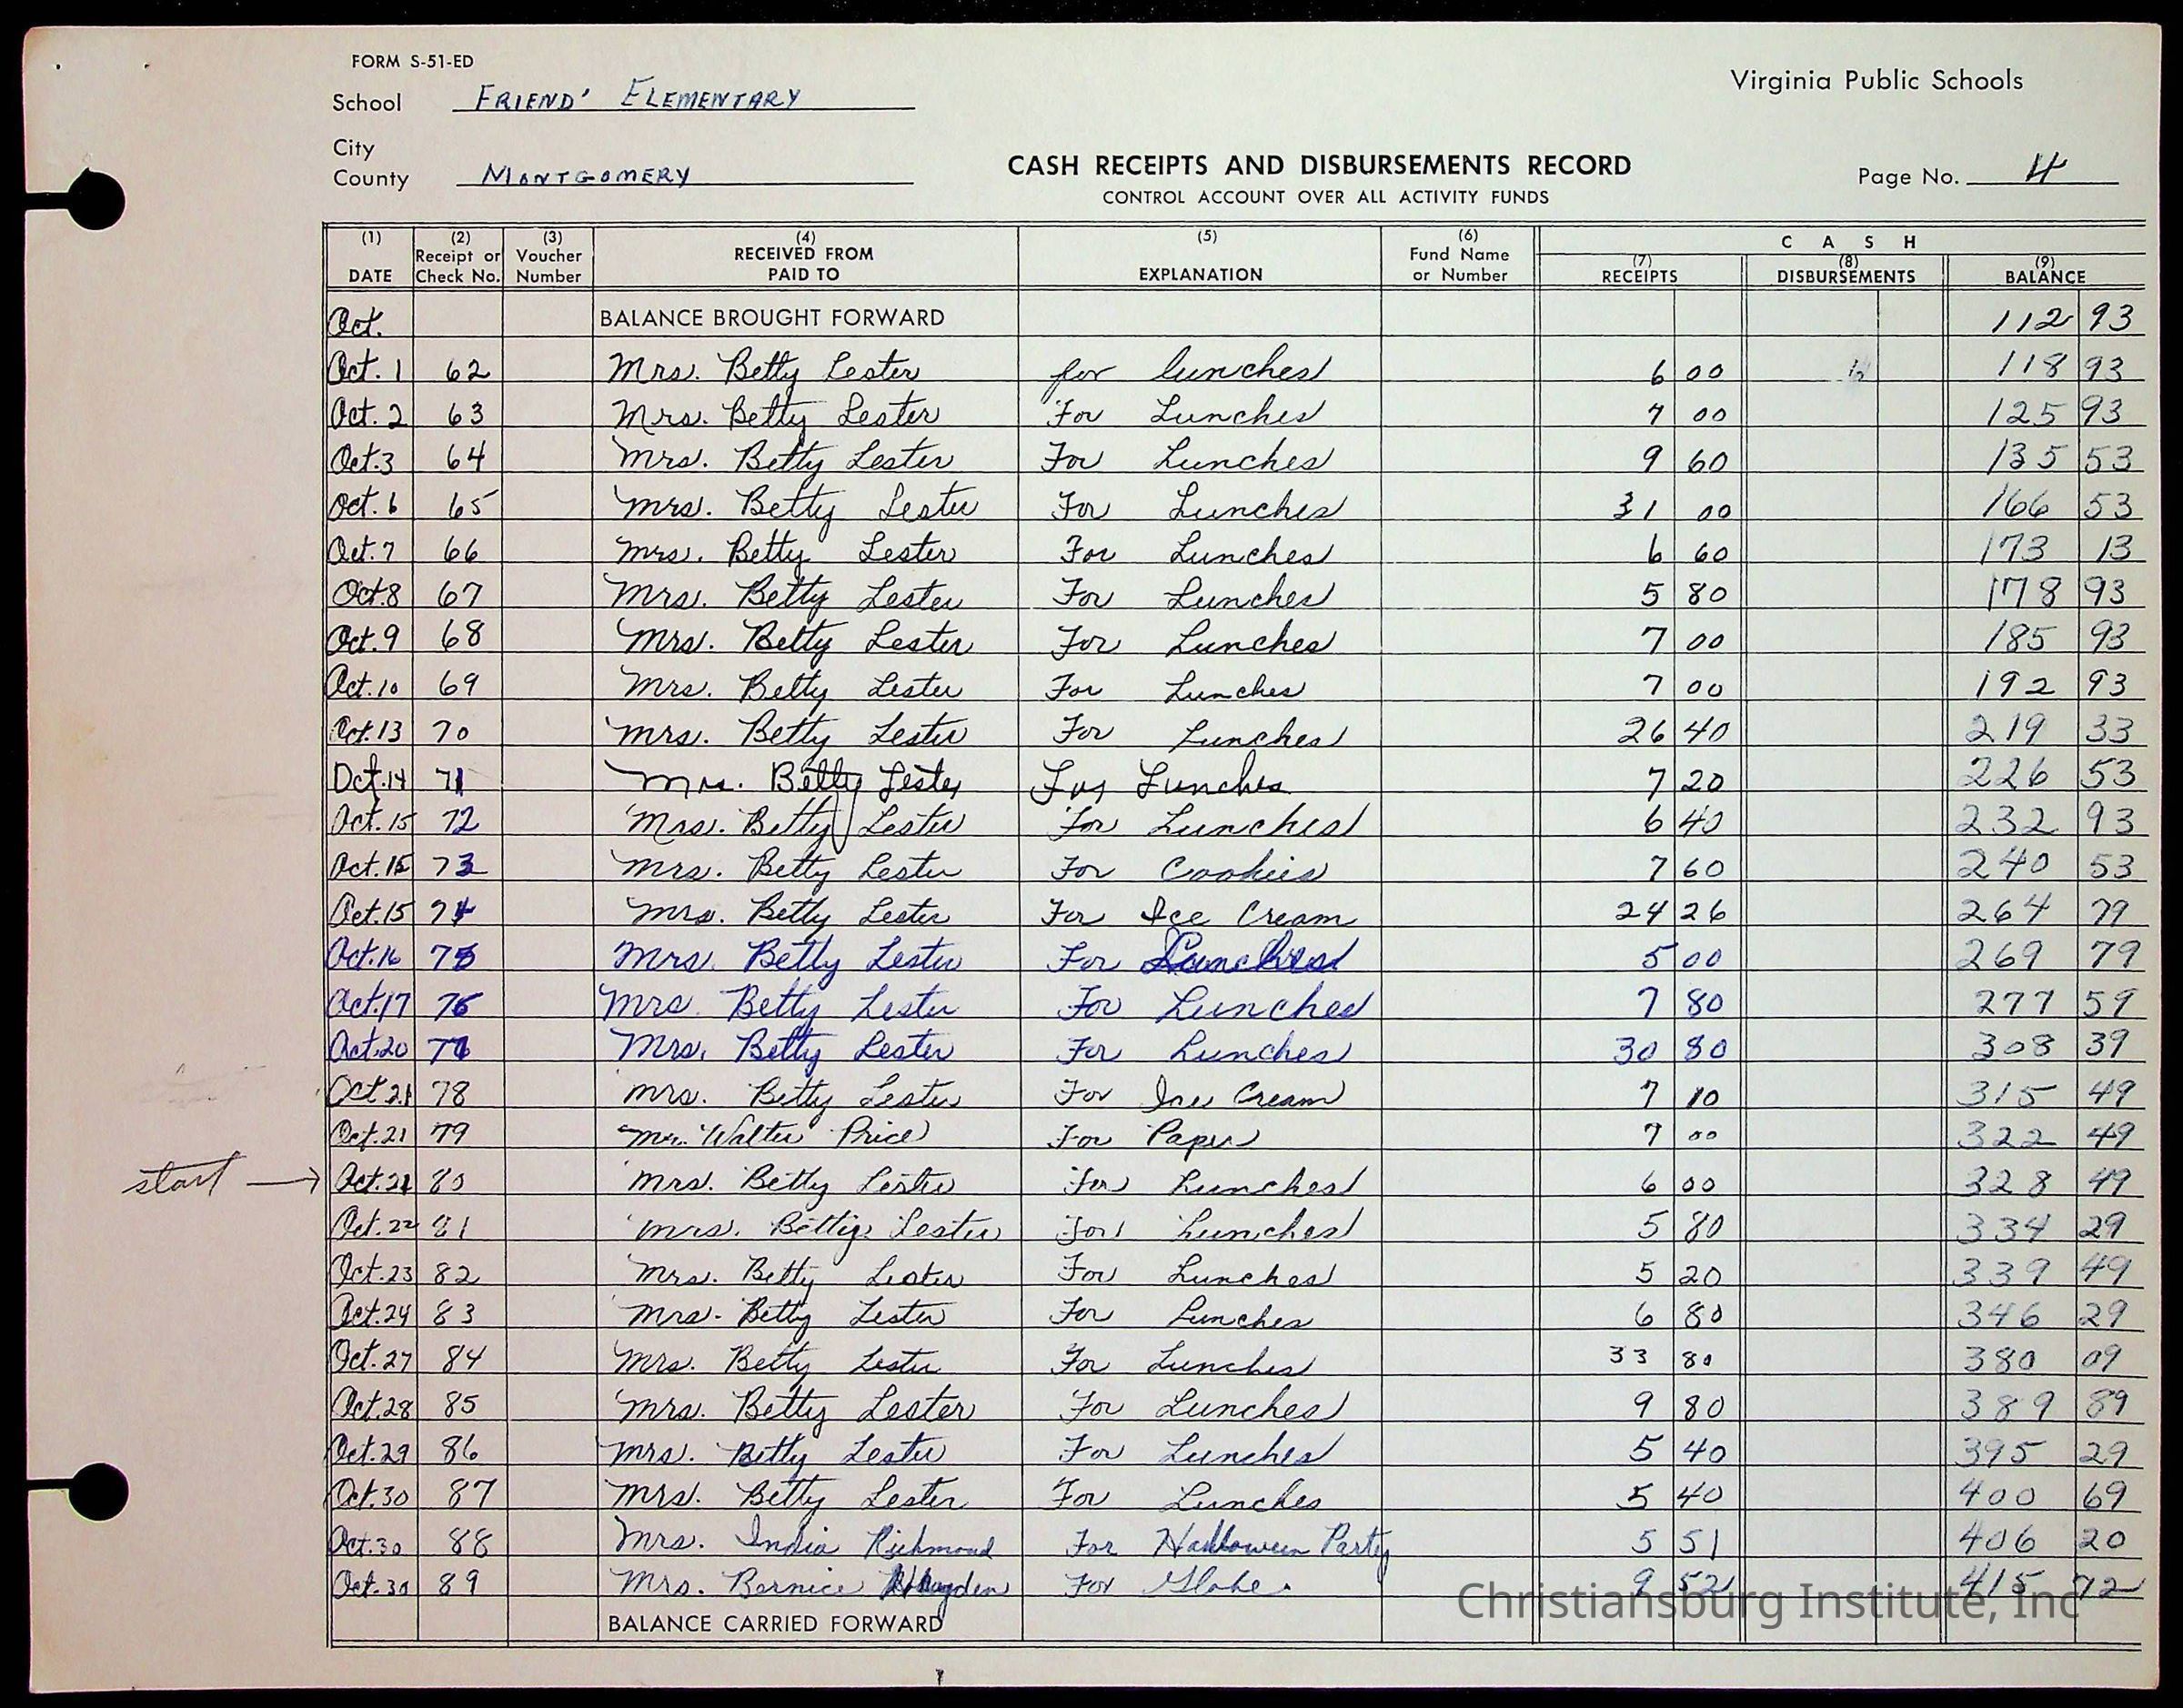 FORM S-51-ED
School FRIEND' ELEMENTARY
Virginia Public Schools
City
County MONTGOMERY
CASH RECEIPTS AND DISBURSEMENTS RECORD
Page No. 4
CONTROL ACCOUNT OVER ALL ACTIVITY FUNDS
(1) DATE (2) Receipt or Check No. (3) Voucher Number (4) RECEIVED FROM PAID TO (5) EXPLANATION (6) Fund Name or Number CASH (7) RECEIPTS (8) DISBURSEMENTS (9) BALANCE
Oct. BALANCE BROUGHT FORWARD 112 93
Oct. 1 62 Mrs. Betty Lester for lunches 6 00 118 93
Oct. 2 63 Mrs. Betty Lester For Lunches 7 00 125 93
Oct. 3 64 Mrs. Betty Lester For Lunches 9 60 135 53
Oct. 6 65 Mrs. Betty Lester For Lunches 31 00 166 53
Oct. 7 66 Mrs. Betty Lester For Lunches 6 60 173 13
Oct. 8 67 Mrs. Betty Lester For Lunches 5 80 178 93
Oct. 9 68 Mrs. Betty Lester For Lunches 7 00 185 93
Oct. 10 69 Mrs. Betty Lester For Lunches 7 00 192 93
Oct. 13 70 Mrs. Betty Lester For Lunches 26 40 219 33
Oct. 14 71 Mrs. Betty Lester For Lunches 7 20 226 53
Oct. 15 72 Mrs. Betty Lester For Lunches 6 40 232 93
Oct. 15 73 Mrs. Betty Lester For Cookies 7 60 240 53
Oct. 15 74 Mrs. Betty Lester For Ice Cream 24 26 264 79
Oct. 16 75 Mrs. Betty Lester For Lunches 5 00 269 79
Oct. 17 76 Mrs. Betty Lester For Lunches 7 80 277 59
Oct. 20 77 Mrs. Betty Lester For Lunches 30 80 308 39
Oct. 21 78 Mrs. Betty Lester For Ice Cream 7 10 315 49
Oct. 21 79 Mr. Walter Price For Paper 7 00 322 49
start → Oct. 21 80 Mrs. Betty Lester For Lunches 6 00 328 49
Oct. 22 81 Mrs. Betty Lester For Lunches 5 80 334 29
Oct. 23 82 Mrs. Betty Lester For Lunches 5 20 339 49
Oct. 24 83 Mrs. Betty Lester For Lunches 6 80 346 29
Oct. 27 84 Mrs. Betty Lester For Lunches 33 80 380 09
Oct. 28 85 Mrs. Betty Lester For Lunches 9 80 389 89
Oct. 29 86 Mrs. Betty Lester For Lunches 5 40 395 29
Oct. 30 87 Mrs. Betty Lester For Lunches 5 40 400 69
Oct. 30 88 Mrs. India Richmond For Halloween Party 5 51 406 20
Oct. 30 89 Mrs. Bernice For Globe. 9 52 415 72
BALANCE CARRIED FORWARD
Christiansburg Institute, Inc